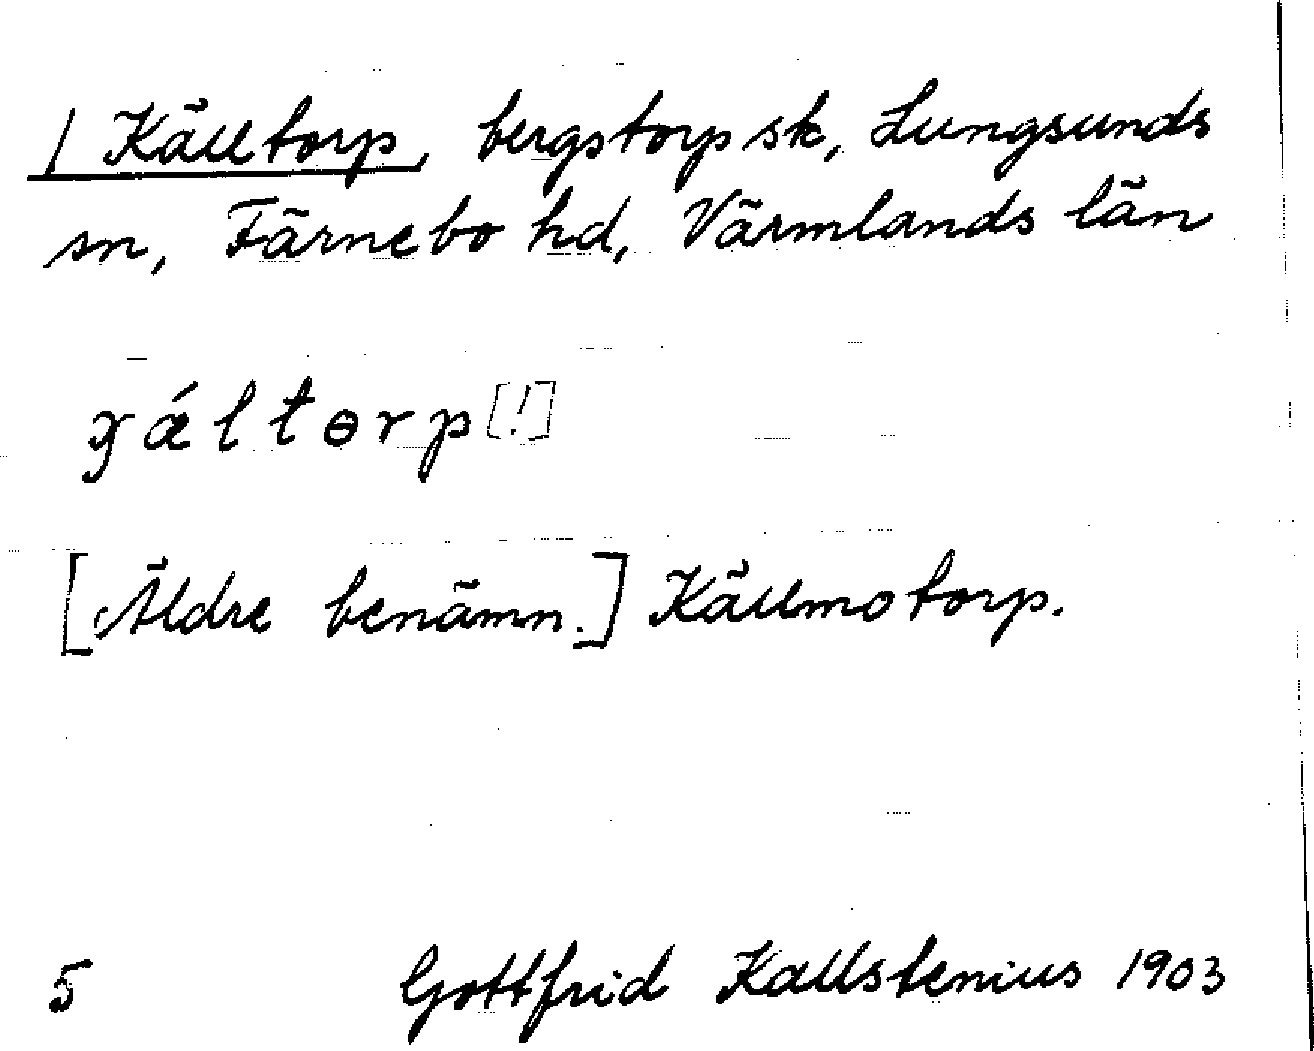 / Källtorp, bergstorpsk, Lungsunds
sn, Färnebo hd, Värmlands län
ɣǽltɵrp [!]
[Äldre benämn.] Källmotorp.
5 Gottfrid Kallstenius 1903